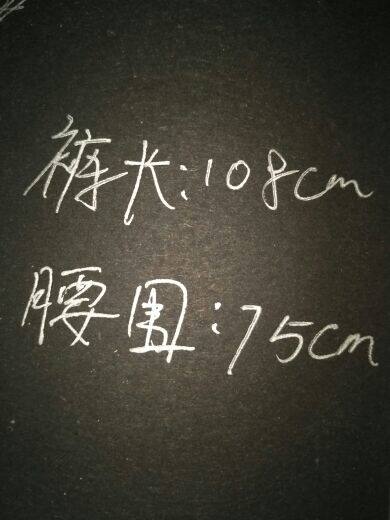 裤长:108cm
腰围:75cm